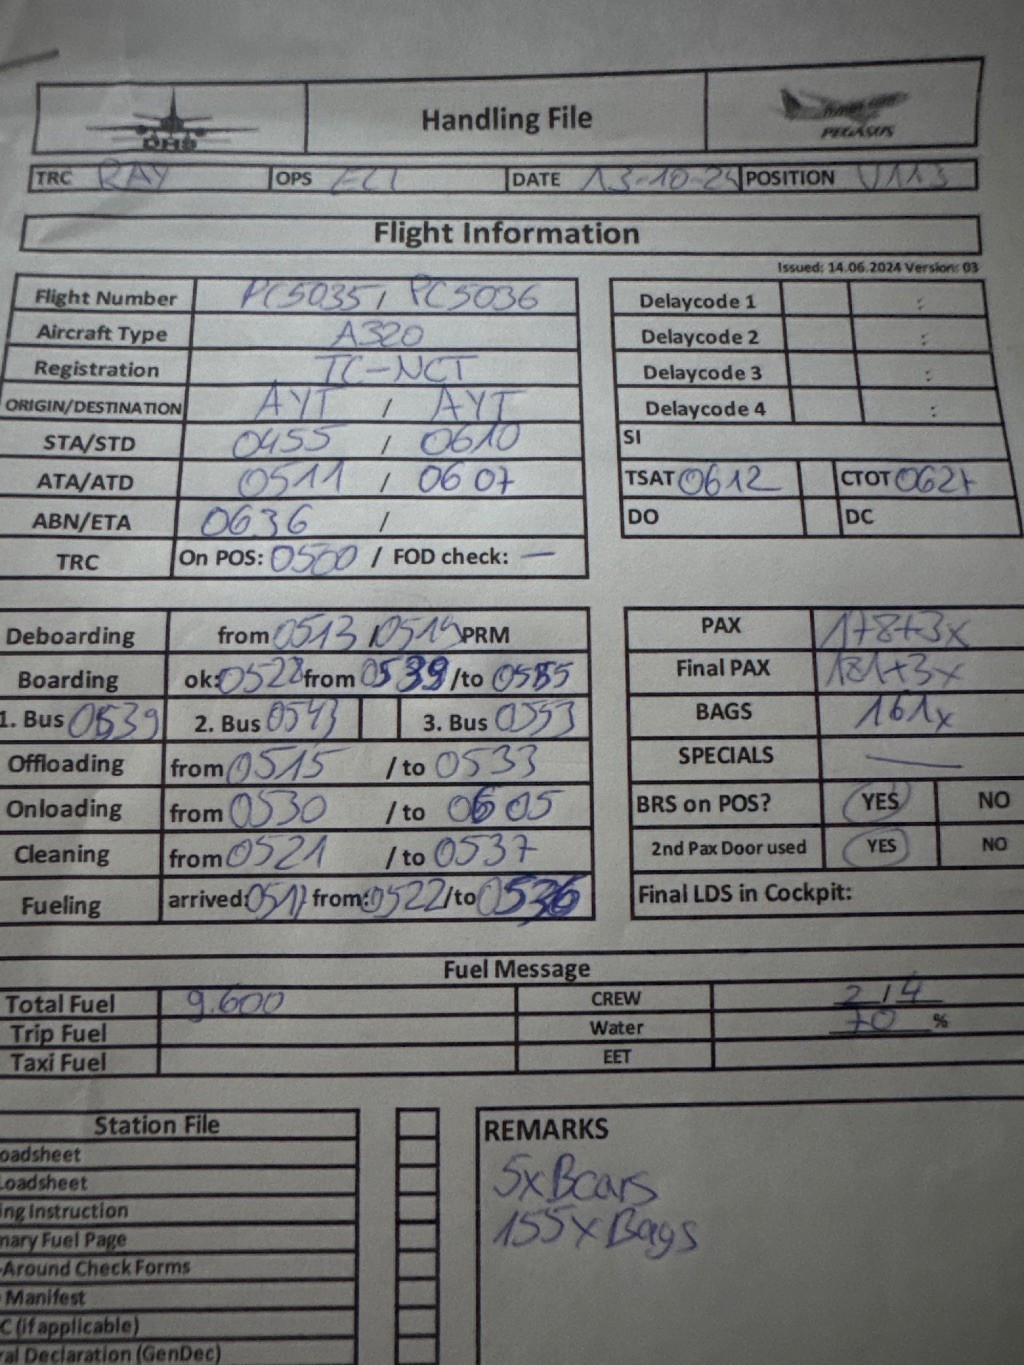 DHS Handling File PEGASUS
TRC RAY OPS ECI DATE 13-10-24 POSITION V113
Flight Information
Issued: 14.06.2024 Version: 03
Flight Number PC5035 / PC5036
Aircraft Type A320
Registration TC-NCT
ORIGIN/DESTINATION AYT / AYT
STA/STD 0455 / 0610
ATA/ATD 0511 / 0607
ABN/ETA 0636 /
TRC On POS: 0500 / FOD check: —
Delaycode 1 :
Delaycode 2 :
Delaycode 3 :
Delaycode 4 :
SI
TSAT 0612 CTOT 0627
DO DC
Deboarding from 0513 / 0519 PRM
Boarding ok: 0528 from 0539 /to 0555
1. Bus 0539 2. Bus 0543 3. Bus 0553
Offloading from 0515 / to 0533
Onloading from 0530 / to 0605
Cleaning from 0521 / to 0537
Fueling arrived: 0517 from: 0522 /to 0536
PAX 178+3x
Final PAX 181+3x
BAGS 161x
SPECIALS —
BRS on POS? YES NO
2nd Pax Door used YES NO
Final LDS in Cockpit:
Fuel Message
Total Fuel 9.600 CREW 2 / 4
Trip Fuel Water 70 %
Taxi Fuel EET
Station File
oadsheet
Loadsheet
ing Instruction
nary Fuel Page
-Around Check Forms
Manifest
C (if applicable)
ral Declaration (GenDec)
REMARKS
5xBcars
155xBags